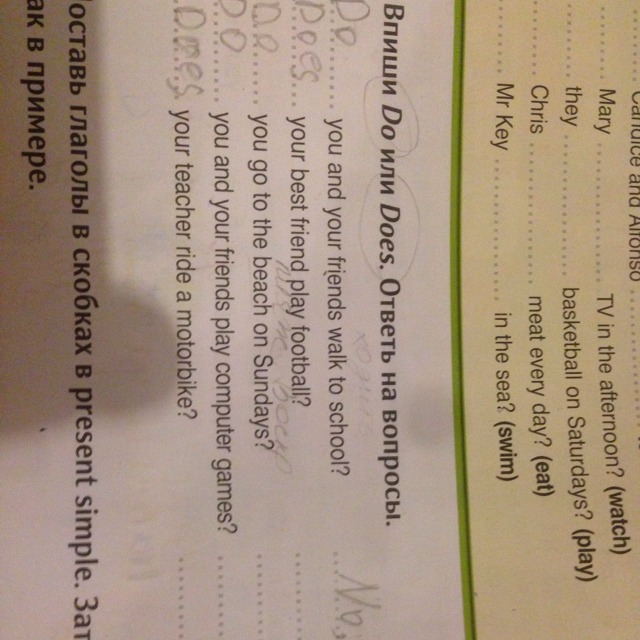 Candice and Alfonso
Mary ............ TV in the afternoon? (watch)
they ............ basketball on Saturdays? (play)
Chris ............ meat every day? (eat)
Mr Key ............ in the sea? (swim)
Впиши Do или Does. Ответь на вопросы.
Do you and your friends walk to school? No,
Does your best friend play football?
Do you go to the beach on Sundays?
Do you and your friends play computer games?
Does your teacher ride a motorbike?
Поставь глаголы в скобках в present simple. Зат
ак в примере.